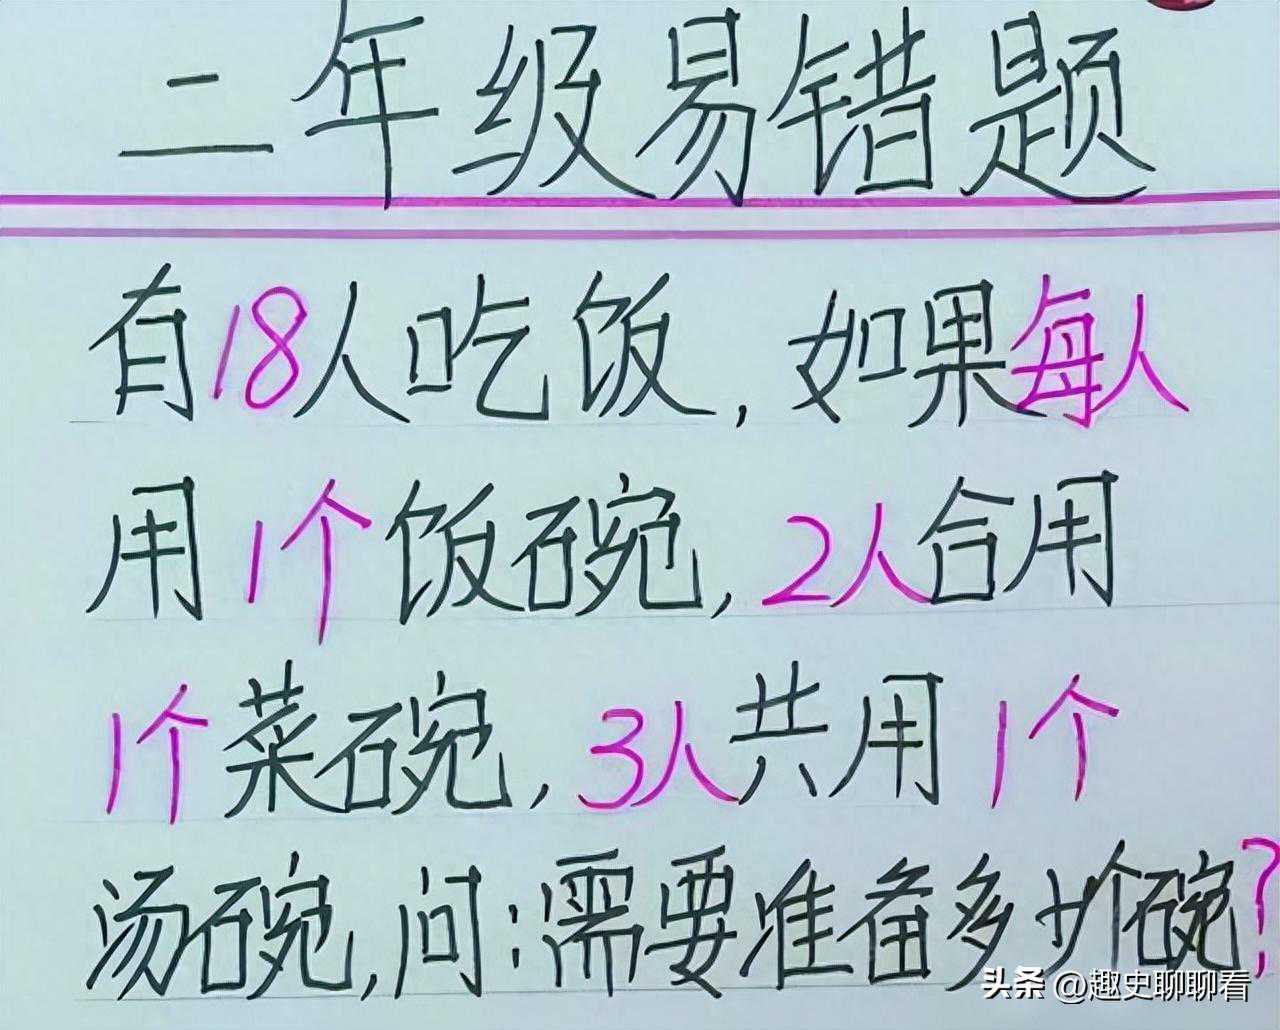 二年级易错题
有18人吃饭,如果每人
用1个饭碗,2人合用
1个菜碗,3人共用1个
汤碗,问:需要准备多少个碗?
头条 @趣史聊聊看